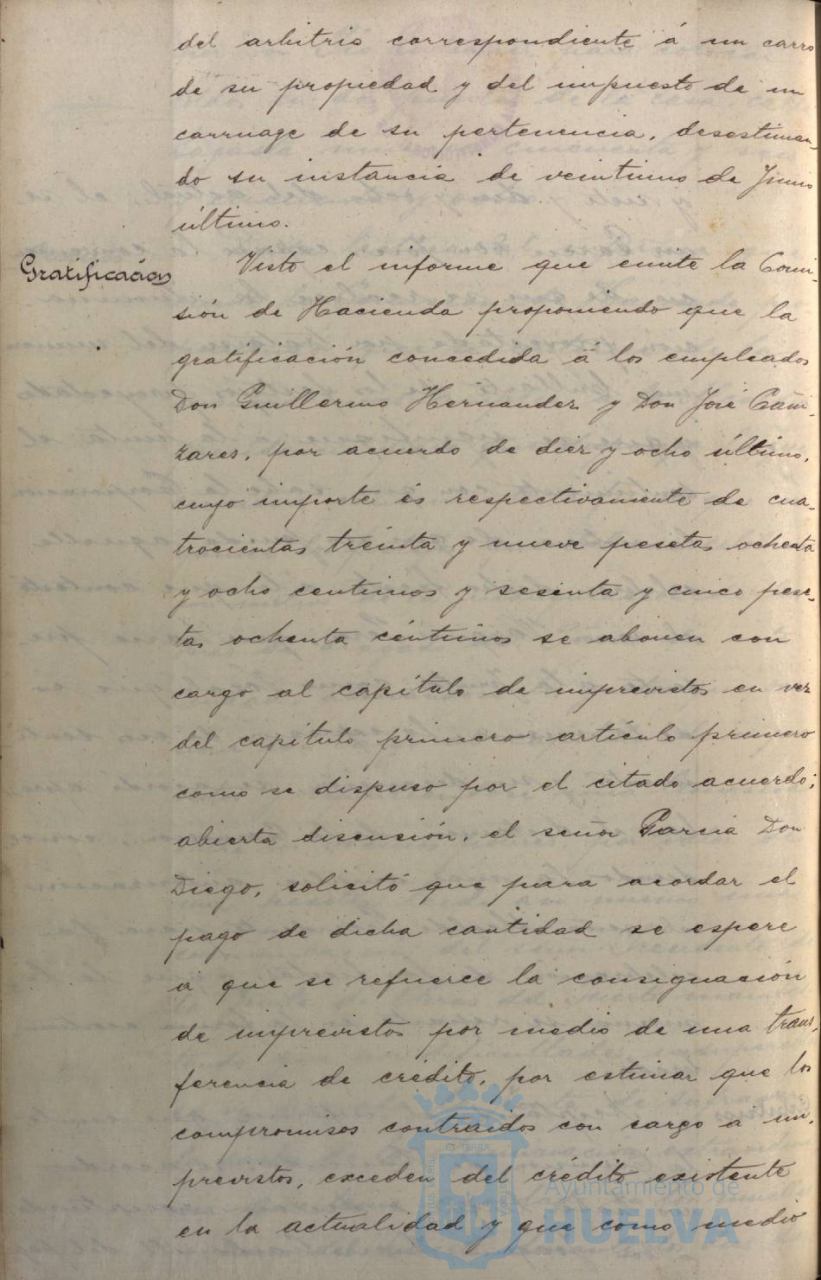 del arbitrio correspondiente á un carro
de su propiedad y del impuesto de un
carruage de su pertenencia, desestiman-
do su instancia de veintiuno de Junio
último.
Gratificación
Visto el informe que emite la Comi-
sión de Hacienda proponiendo que la
gratificación concedida á los empleados
Don Guillermo Hernandez y Don José Cañi-
zares, por acuerdo de diez y ocho último,
cuyo importe és respectivamente de cua-
trocientas treinta y nueve pesetas ochenta
y ocho centimos y sesenta y cinco pese-
tas ochenta céntimos se abonen con
cargo al capítulo de imprevistos en vez
del capítulo primero artículo primero
como se dispuso por el citado acuerdo;
abierta discusión, el señor Garcia Don
Diego, solicitó que para acordar el
pago de dicha cantidad se espere
a que se refuerce la consignación
de imprevistos por medio de una trans-
ferencia de crédito, por estimar que los
compromisos contraidos con cargo a im-
previstos, exceden del crédito existente
en la actualidad y que como medio
Ayuntamiento de
HUELVA